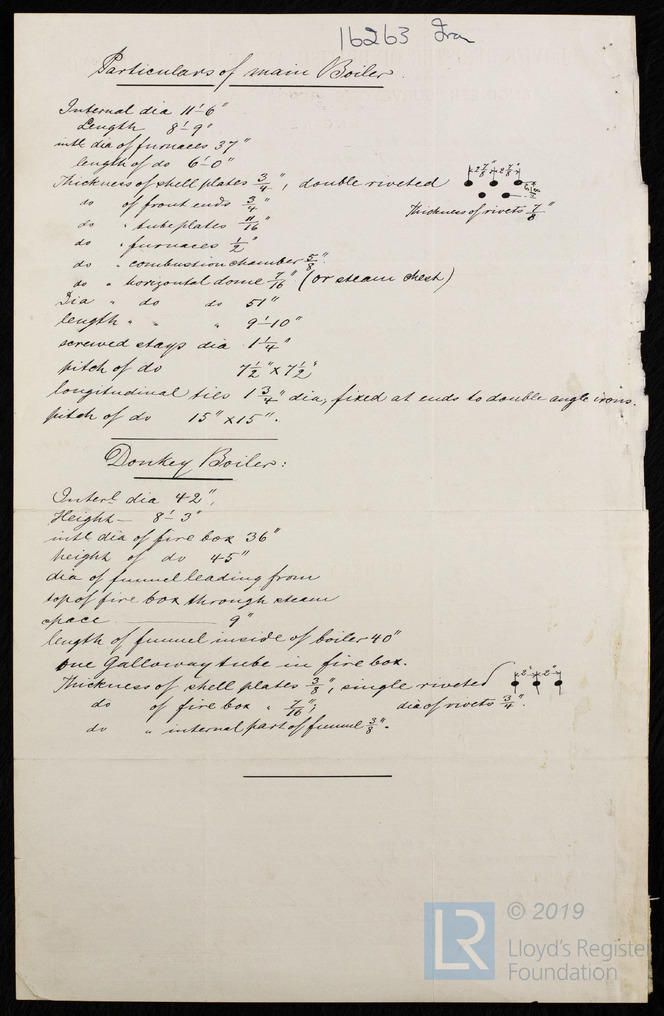 16263 Iron
Particulars of main Boiler.
Internal dia 11'-6"
Length 8'-9"
intl dia of furnaces 37"
length of do 6'-0"
Thickness of shell plates 3/4", double riveted
2 7/8" 2 7/8"
do of front ends 3/4"
Thickness of rivets 7/8"
do " tube plates 11/16"
do " furnaces 1/2"
do " combustion chamber 5/8".
do " horizontal dome 7/16" (or steam chest)
Dia " do do 51"
length " " " 9'-10"
screwed stays dia 1 1/4"
pitch of do 7 1/2" x 7 1/2"
longitudinal ties 1 3/4" dia, fixed at ends to double angle irons.
pitch of do 15" x 15".
Donkey Boiler:
Interl dia 42",
Height — 8'-3"
intl dia of fire box 36"
height of do 45"
dia of funnel leading from
top of fire box through steam
space — 9"
length of funnel inside of boiler 40"
one Galloway tube in fire box.
Thickness of shell plates 3/8", single riveted
2" 2"
do of fire box " 7/16"; dia of rivets 3/4".
do " internal part of funnel 3/8".
LR
© 2019
Lloyd's Register
Foundation